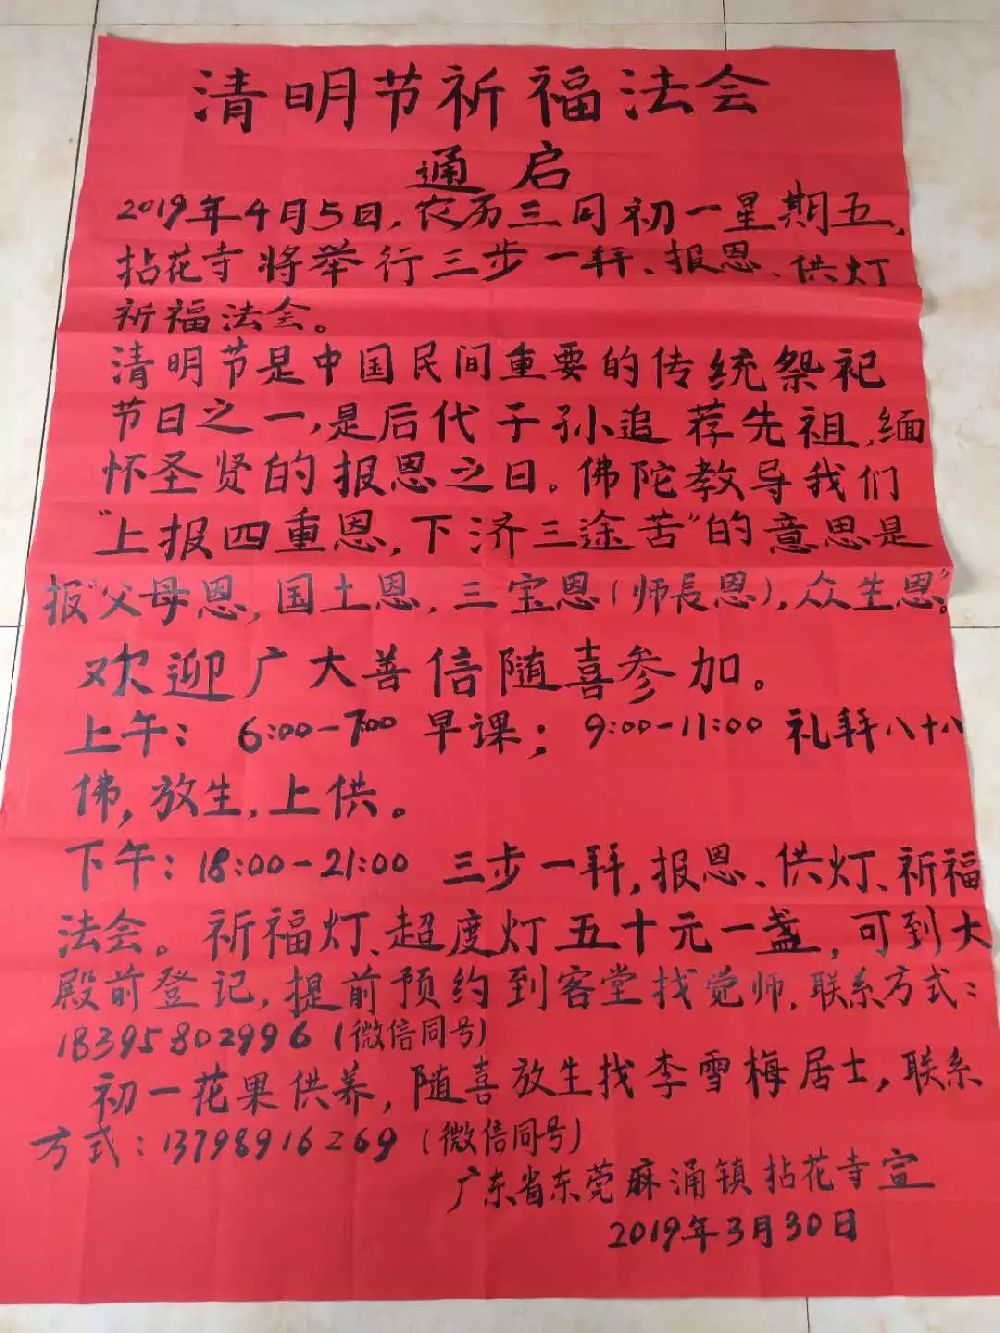 清明节祈福法会
通启
2019年4月5日,农历三月初一星期五,
拈花寺将举行三步一拜、报恩、供灯
祈福法会。
清明节是中国民间重要的传统祭祀
节日之一,是后代子孙追荐先祖,缅
怀圣贤的报恩之日。佛陀教导我们
“上报四重恩,下济三途苦”的意思是
报“父母恩,国土恩,三宝恩(师長恩),众生恩”。
欢迎广大善信随喜参加。
上午: 6:00-7:00 早课; 9:00-11:00 礼拜八十八
佛,放生,上供。
下午: 18:00-21:00 三步一拜,报恩、供灯、祈福
法会。祈福灯、超度灯五十元一盏,可到大
殿前登记,提前预约到客堂找觉师,联系方式:
18395802996(微信同号)
初一花果供养,随喜放生找李雪梅居士,联系
方式:13798916269(微信同号)
广东省东莞麻涌镇拈花寺宣
2019年3月30日